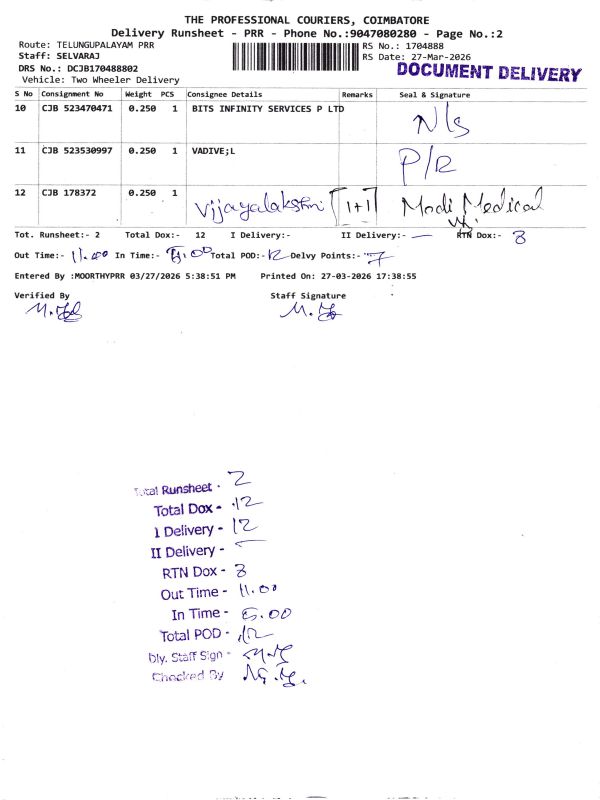 THE PROFESSIONAL COURIERS, COIMBATORE
Delivery Runsheet - PRR - Phone No.:9047080280 - Page No.:2
Route: TELUNGUPALAYAM PRR RS No.: 1704888
Staff: SELVARAJ RS Date: 27-Mar-2026
DRS No.: DCJB170488802 DOCUMENT DELIVERY
Vehicle: Two Wheeler Delivery
S No Consignment No Weight PCS Consignee Details Remarks Seal & Signature
10 CJB 523470471 0.250 1 BITS INFINITY SERVICES P LTD N/s
11 CJB 523530997 0.250 1 VADIVE;L P/R
12 CJB 178372 0.250 1 Vijayalakshmi 1+1 Modi Medical
Tot. Runsheet:- 2 Total Dox:- 12 I Delivery:- II Delivery:- — RTN Dox:- 3
Out Time:- 11.00 In Time:- 5.00 Total POD:- 12 Delvy Points:- 7
Entered By :MOORTHYPRR 03/27/2026 5:38:51 PM Printed On: 27-03-2026 17:38:55
Verified By Staff Signature
Total Runsheet - 2
Total Dox - 12
I Delivery - 12
II Delivery -
RTN Dox - 3
Out Time - 11.00
In Time - 5.00
Total POD - 12
Dly. Staff Sign -
Checked By